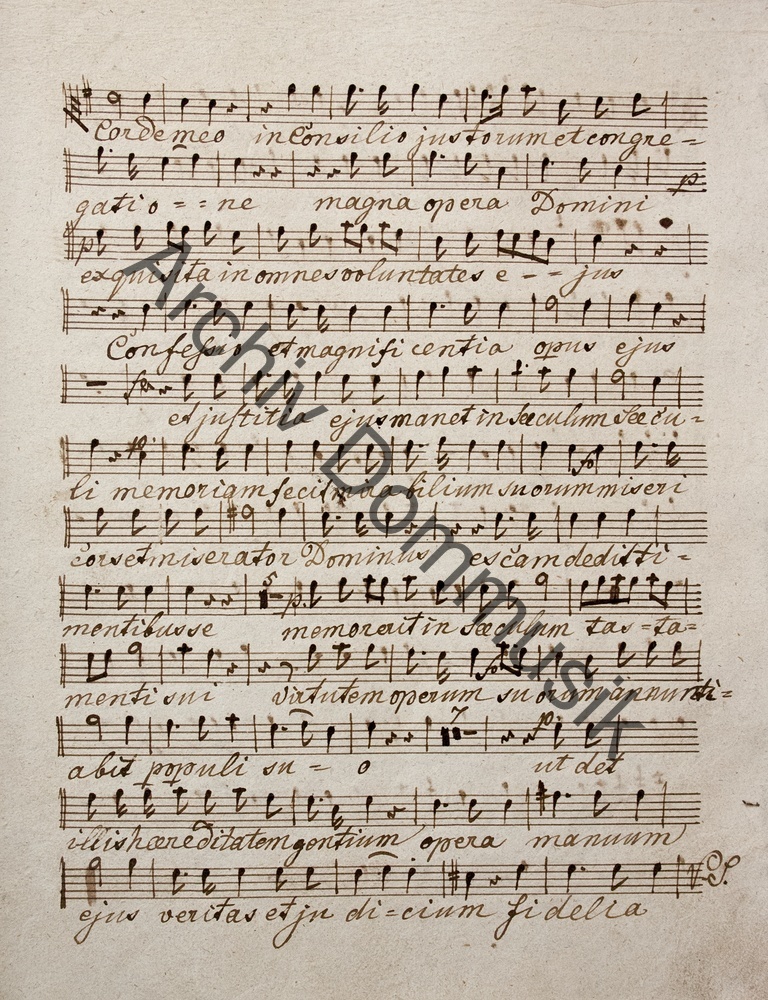 Corde meo in Consilio justorum et congre=
gatio == ne magna opera Domini
p
p
exquisita in omnes voluntates e -- jus
Confessio et magnifi centia opus ejus
et justitia ejus manet in Sæculum Sæcu=
li memoriam fecit mira bilium suorum miseri
cors et miserator Dominus escam dedit ti=
5 p.
mentibus se memor erit in Sæculum tas=ta=
menti sui virtutem operum su orum annunti=
7 p
abit populi su = o ut det
illis hæreditatem gentium opera manuum
V.S.
ejus veritas et ju di=cium fidelia
Archiv Dommusik